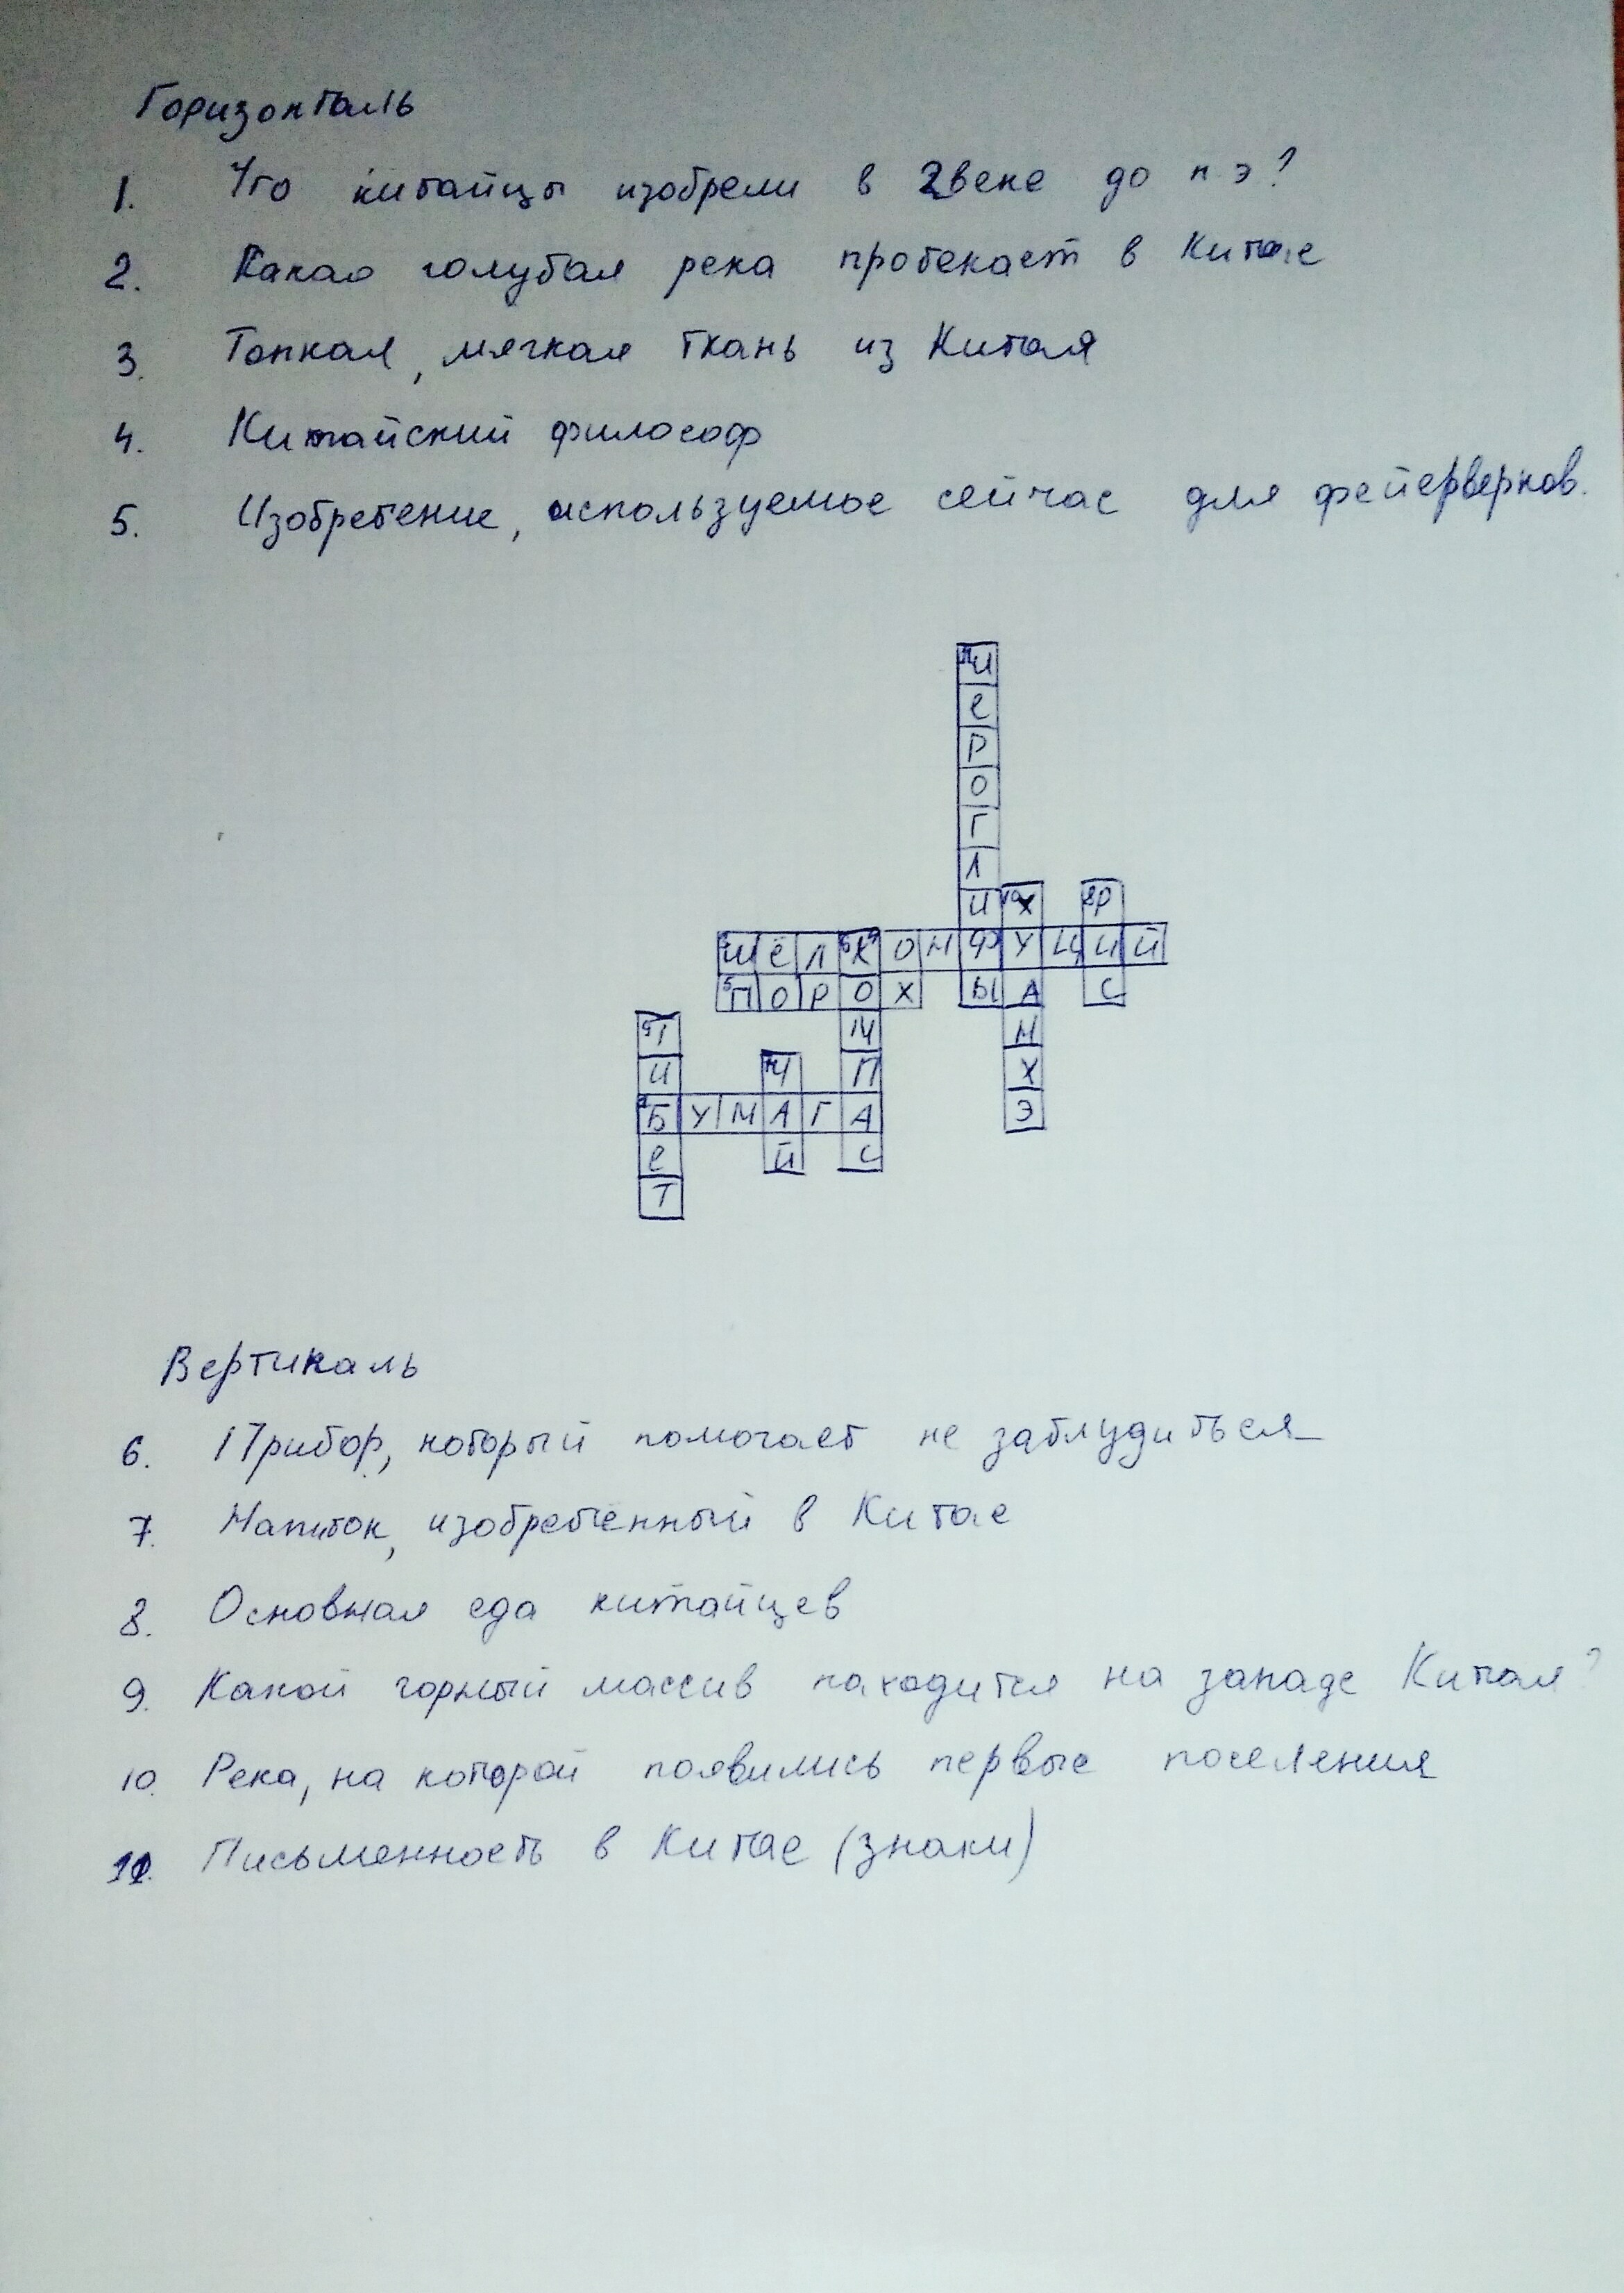 Горизонталь
1. Что китайцы изобрели в 2веке до н э?
2. Какая голубая река протекает в Китае
3. Тонкая, мягкая ткань из Китая
4. Китайский философ
5. Изобретение, используемое сейчас для фейерверков.
11И
е
Р
О
Г
Л
И 10Х 8Р
3Ш Ё Л 6К4 О Н Ф У Ц И Й
5П О Р О Х Ы А С
9Т М Н
И 7Ч П Х
1Б У М А Г А Э
е Й С
Т
Вертикаль
6. Прибор, который помогает не заблудиться
7. Напиток, изобретённый в Китае
8. Основная еда китайцев
9. Какой горный массив находится на западе Китая?
10. Река, на которой появились первые поселения
11. Письменность в Китае (знаки)